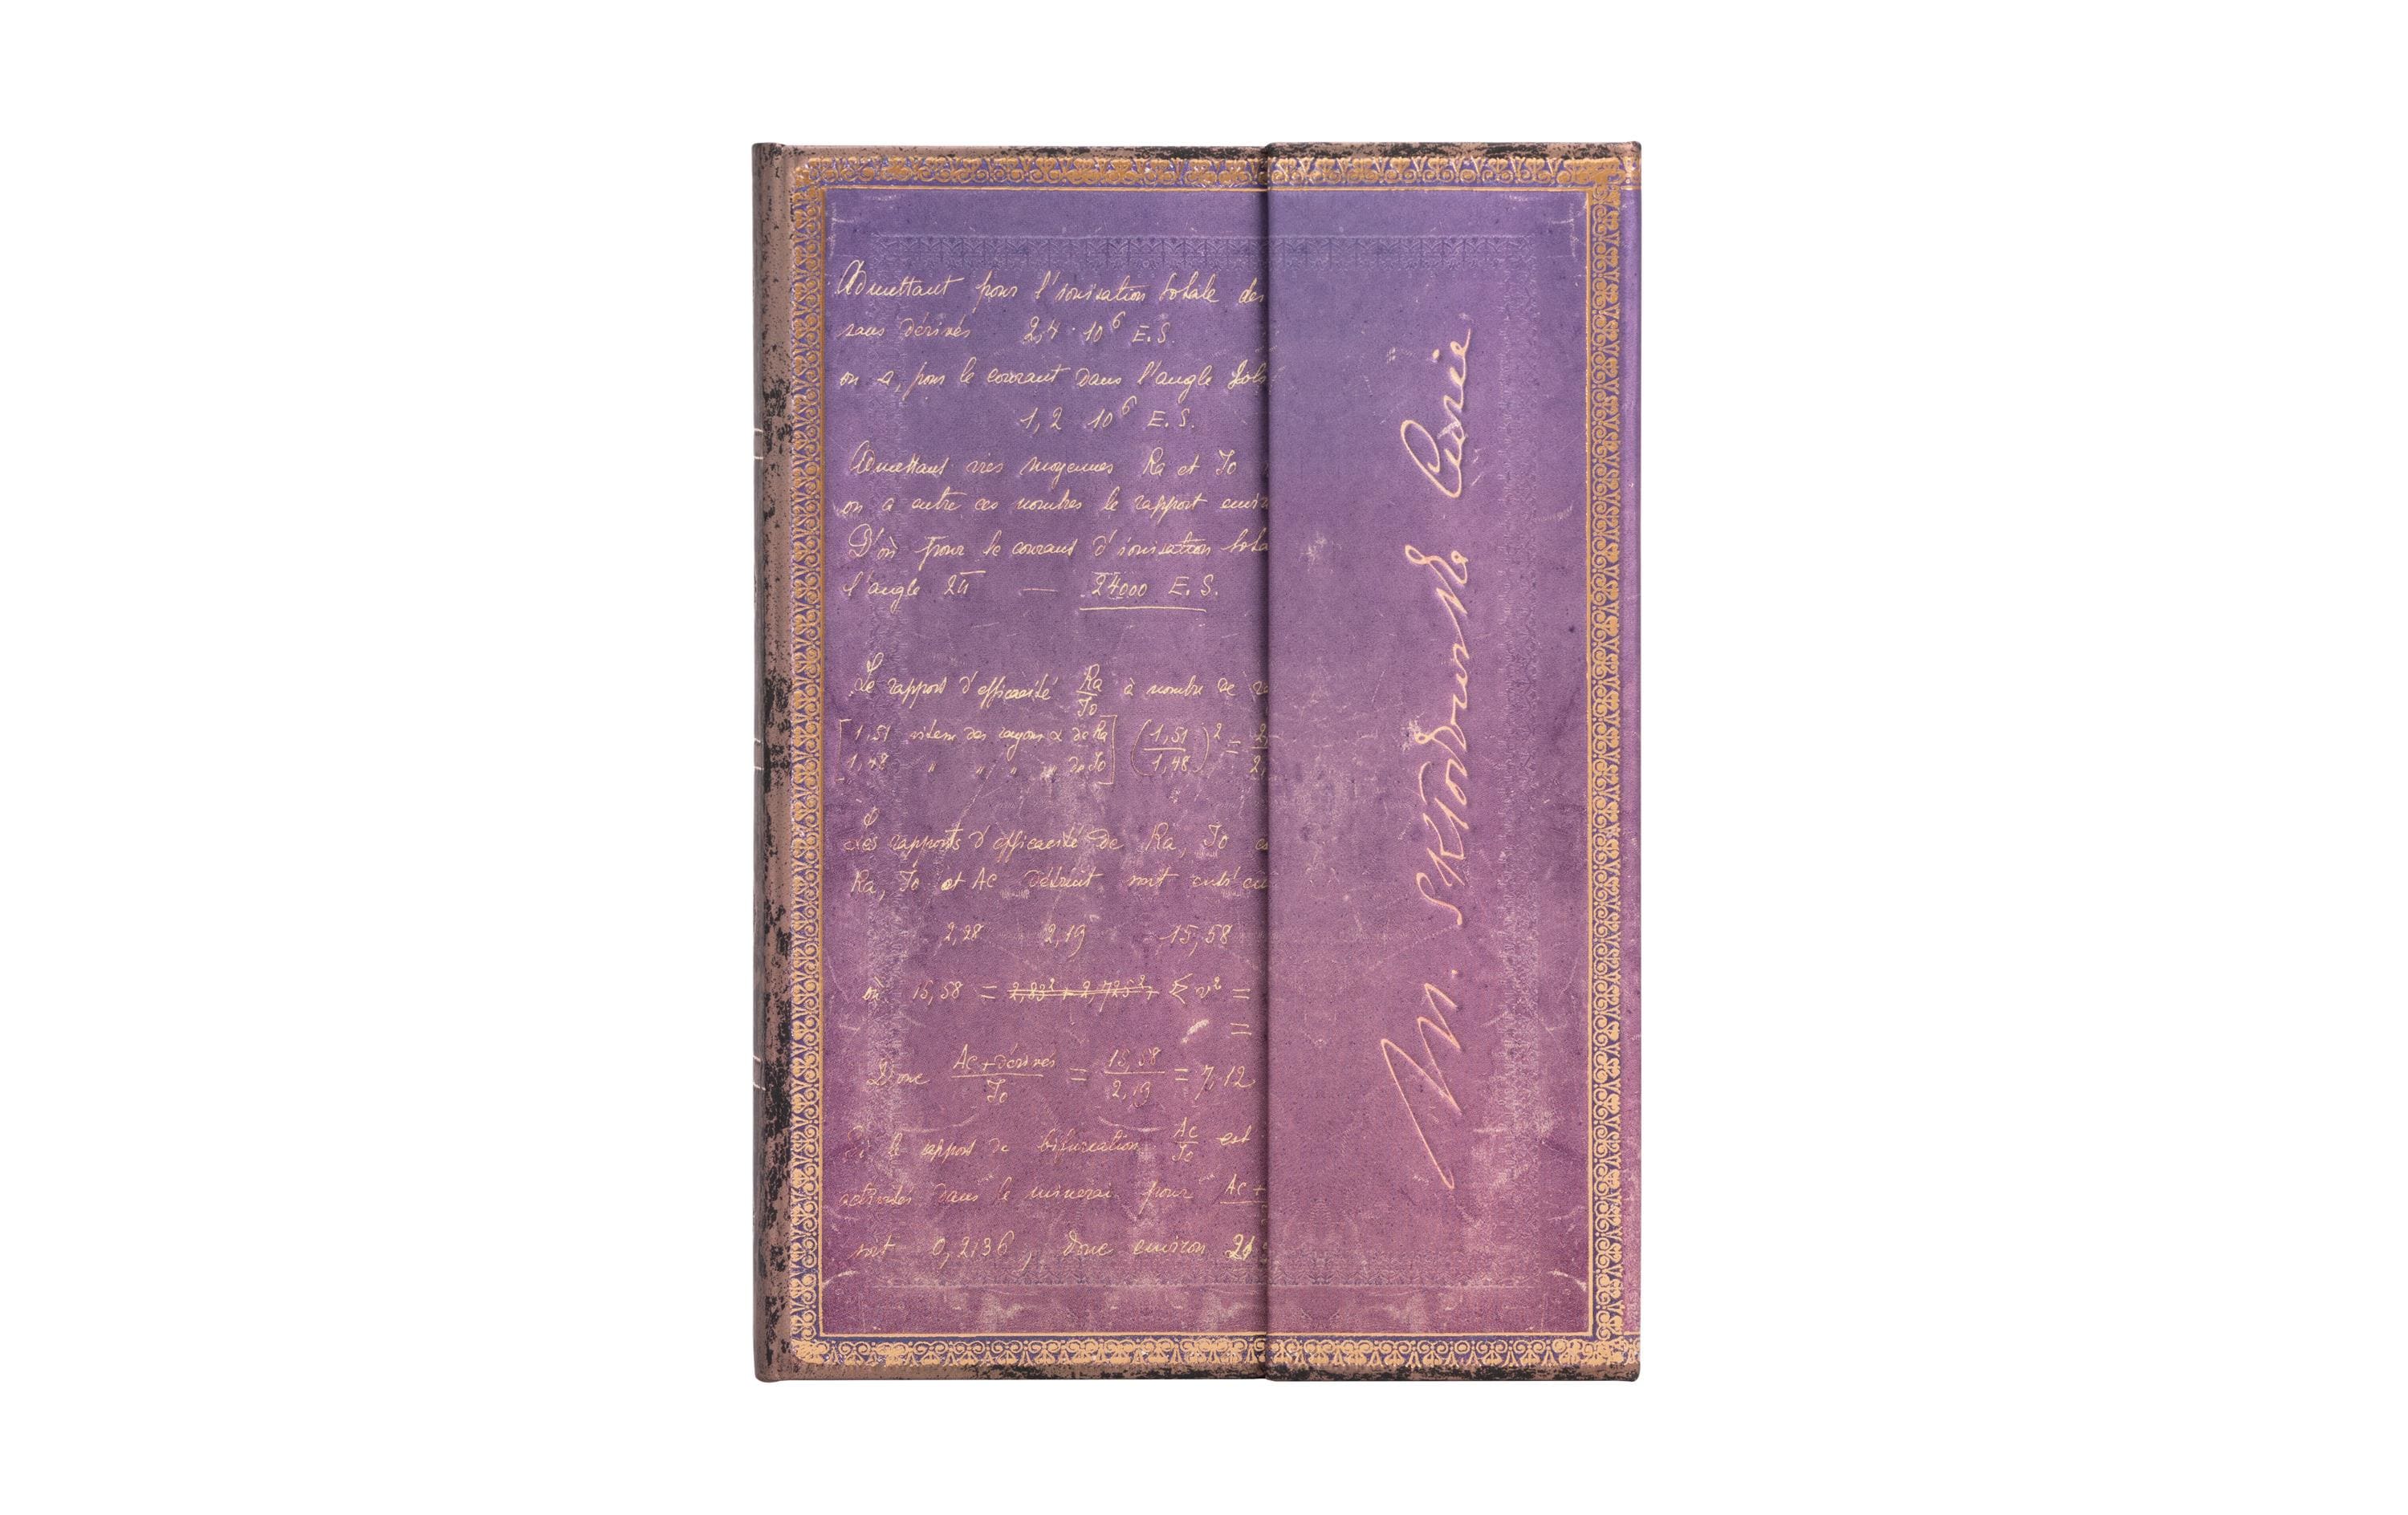 Admettant pour l'ionisation totale des
sans dérivés 2,4 · 10⁶ E.S.
on a, pour le courant dans l'angle
1,2 10⁶ E.S.
Admettant vies moyennes Ra et Io
on a entre ces nombres le rapport
D'où pour le courant d'ionisation
l'angle 2π — 24000 E.S.
Le rapport d'efficacité Ra/Io à nombre de
[1,51 vitesse des rayons α de Ra] (1,51/1,48)² =
1,48 " " " " de Io
Les rapports d'efficacité de Ra, Io
Ra, Io et Ac détruit sont
2,28 2,19 15,58
où 15,58 = 2,83² + 2,725² + Σ v² =
=
Donc Ac + dérivés/Io = 15,58/2,19 = 7,12
Si le rapport de bifurcation Ac/Io est
activités dans le minerai pour Ac +
sont 0,2136, donc environ
M. Skłodowska Curie